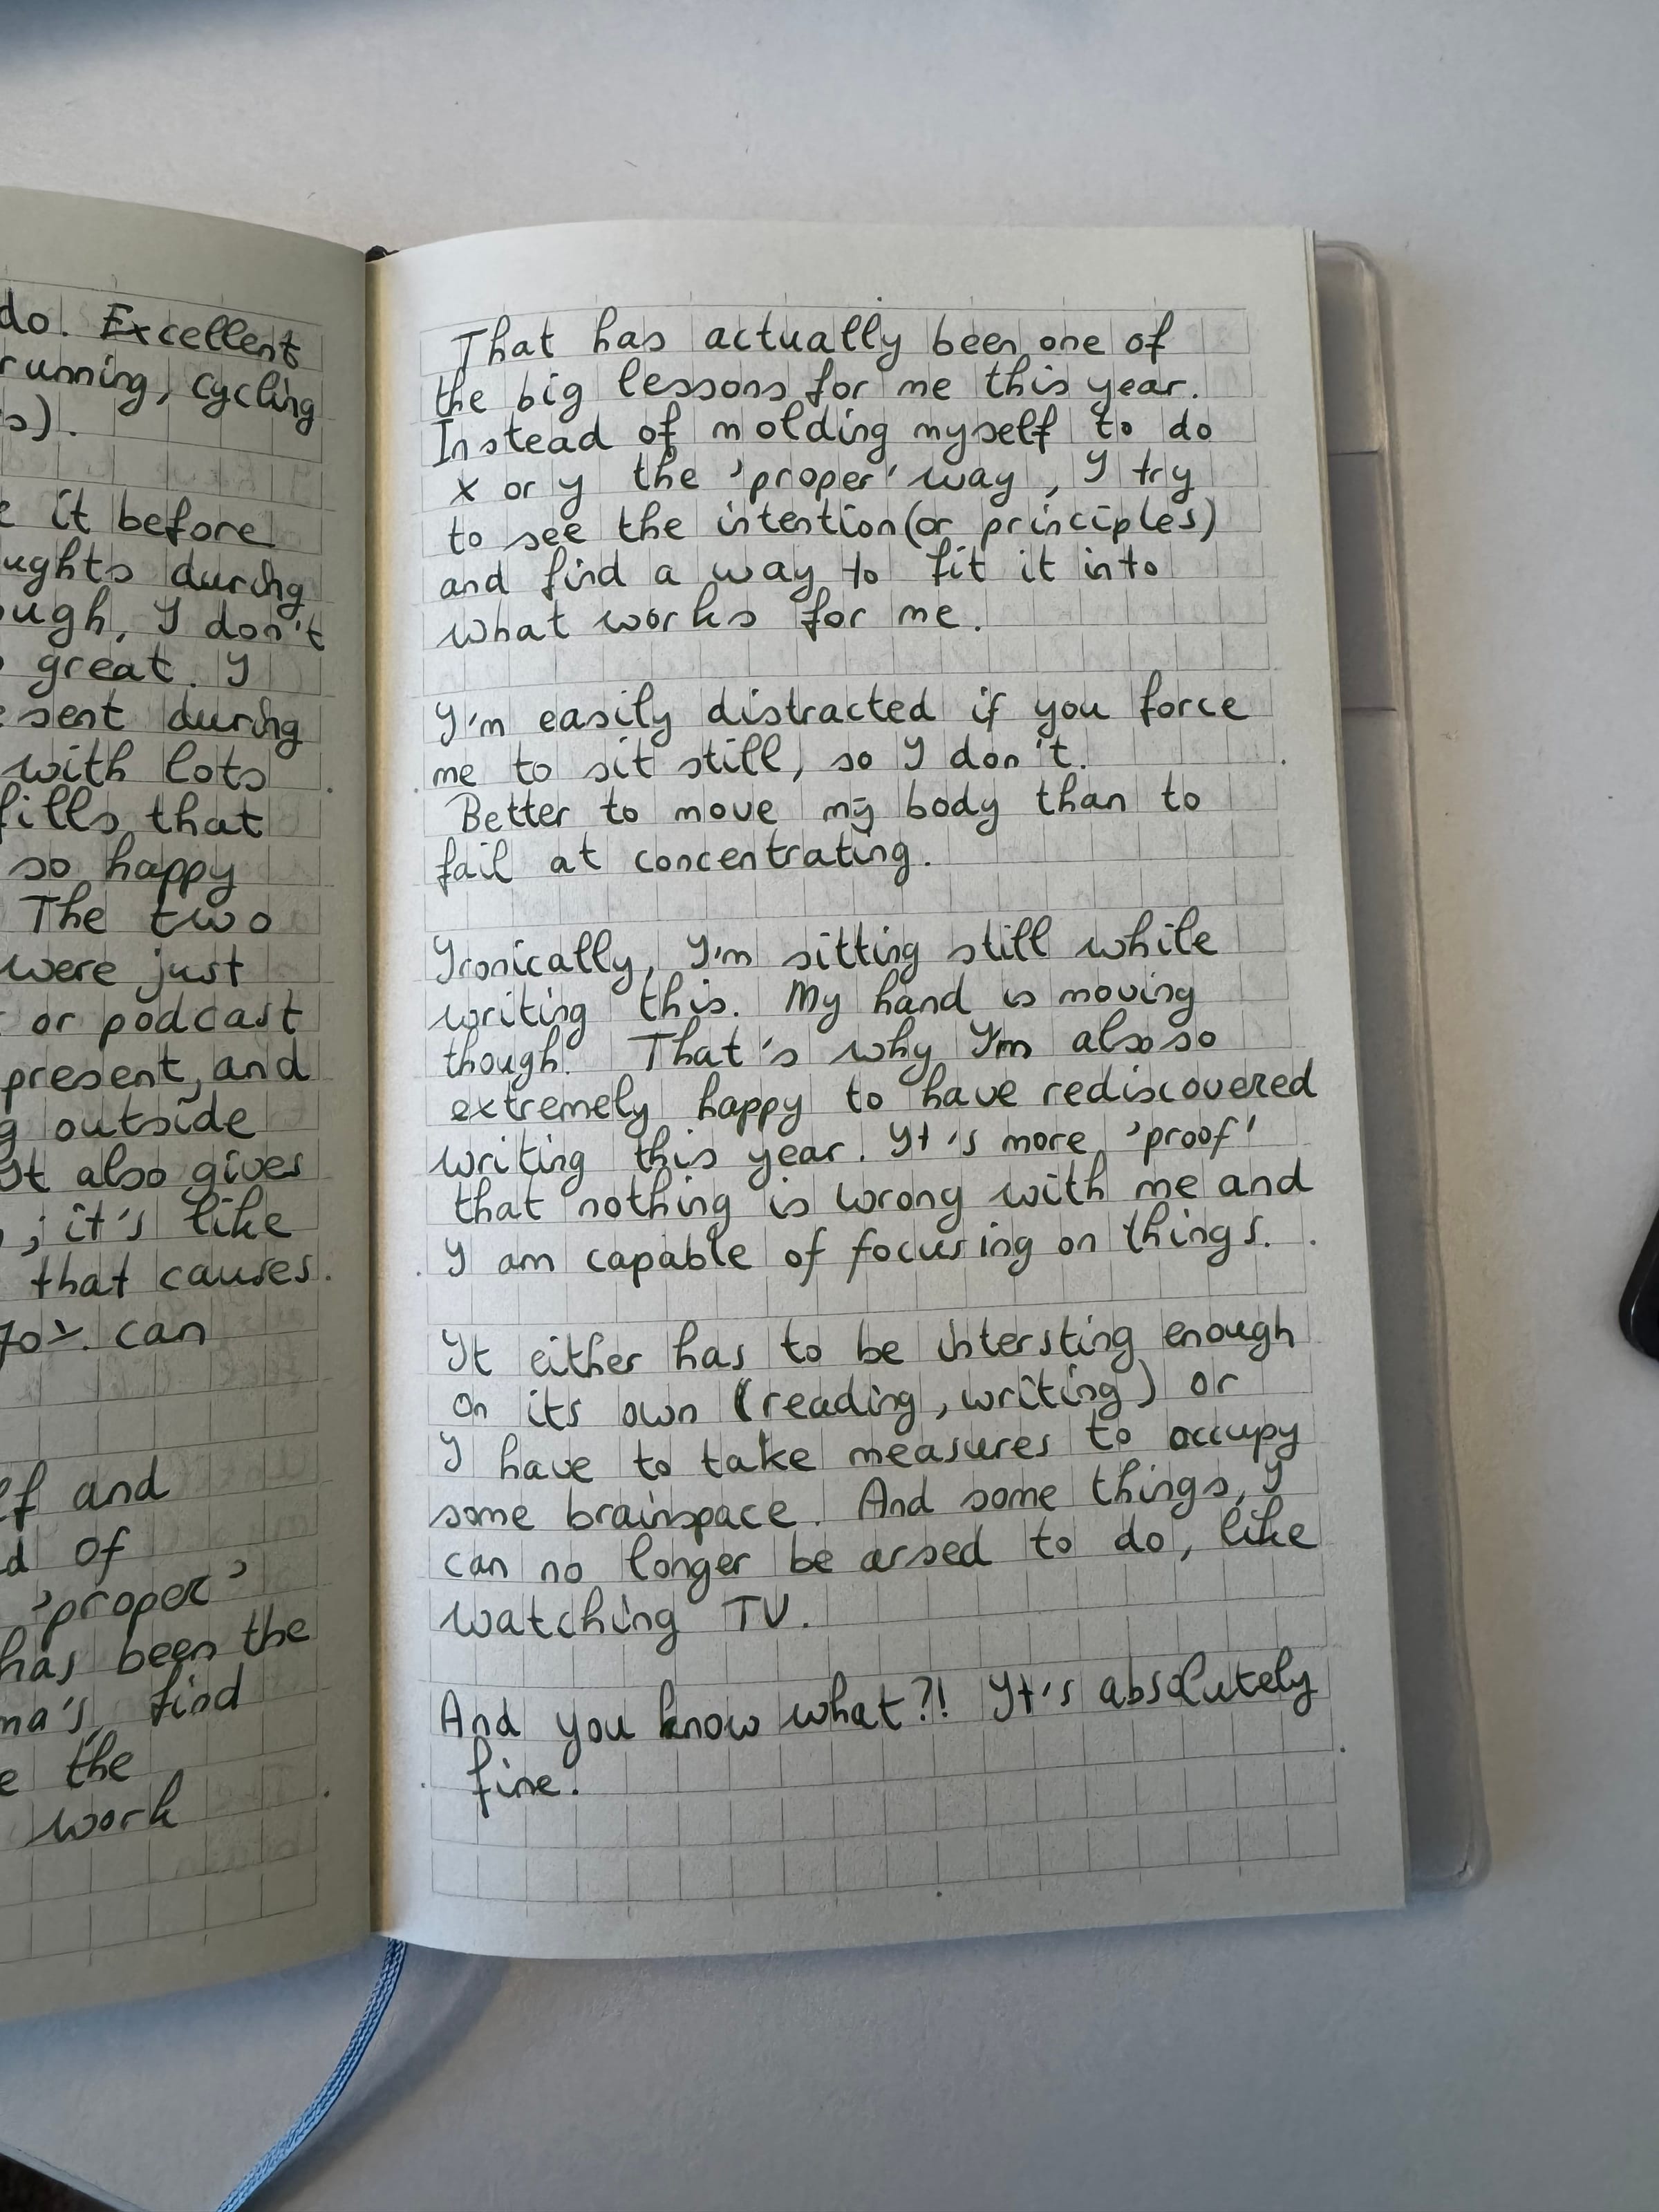 do. Excellent
running, cycling
s).
it before
ughts during
ough, I don't
great. I
sent during
with lots
fills that
so happy
The two
were just
or podcast
present, and
outside
It also gives
; it's like
that causes.
70% can
and
of
'proper'
has been the
ma's, find
the
work
That has actually been one of
the big lessons for me this year.
Instead of molding myself to do
x or y the 'proper' way, I try
to see the intention (or principles)
and find a way to fit it into
what works for me.
I'm easily distracted if you force
me to sit still, so I don't.
Better to move my body than to
fail at concentrating.
Ironically, I'm sitting still while
writing this. My hand is moving
though. That's why I'm also so
extremely happy to have rediscovered
writing this year. It's more 'proof'
that nothing is wrong with me and
I am capable of focusing on things.
It either has to be intersting enough
on its own (reading, writing) or
I have to take measures to occupy
some brainspace. And some things, I
can no longer be arsed to do, like
watching TV.
And you know what?! It's absolutely
fine.